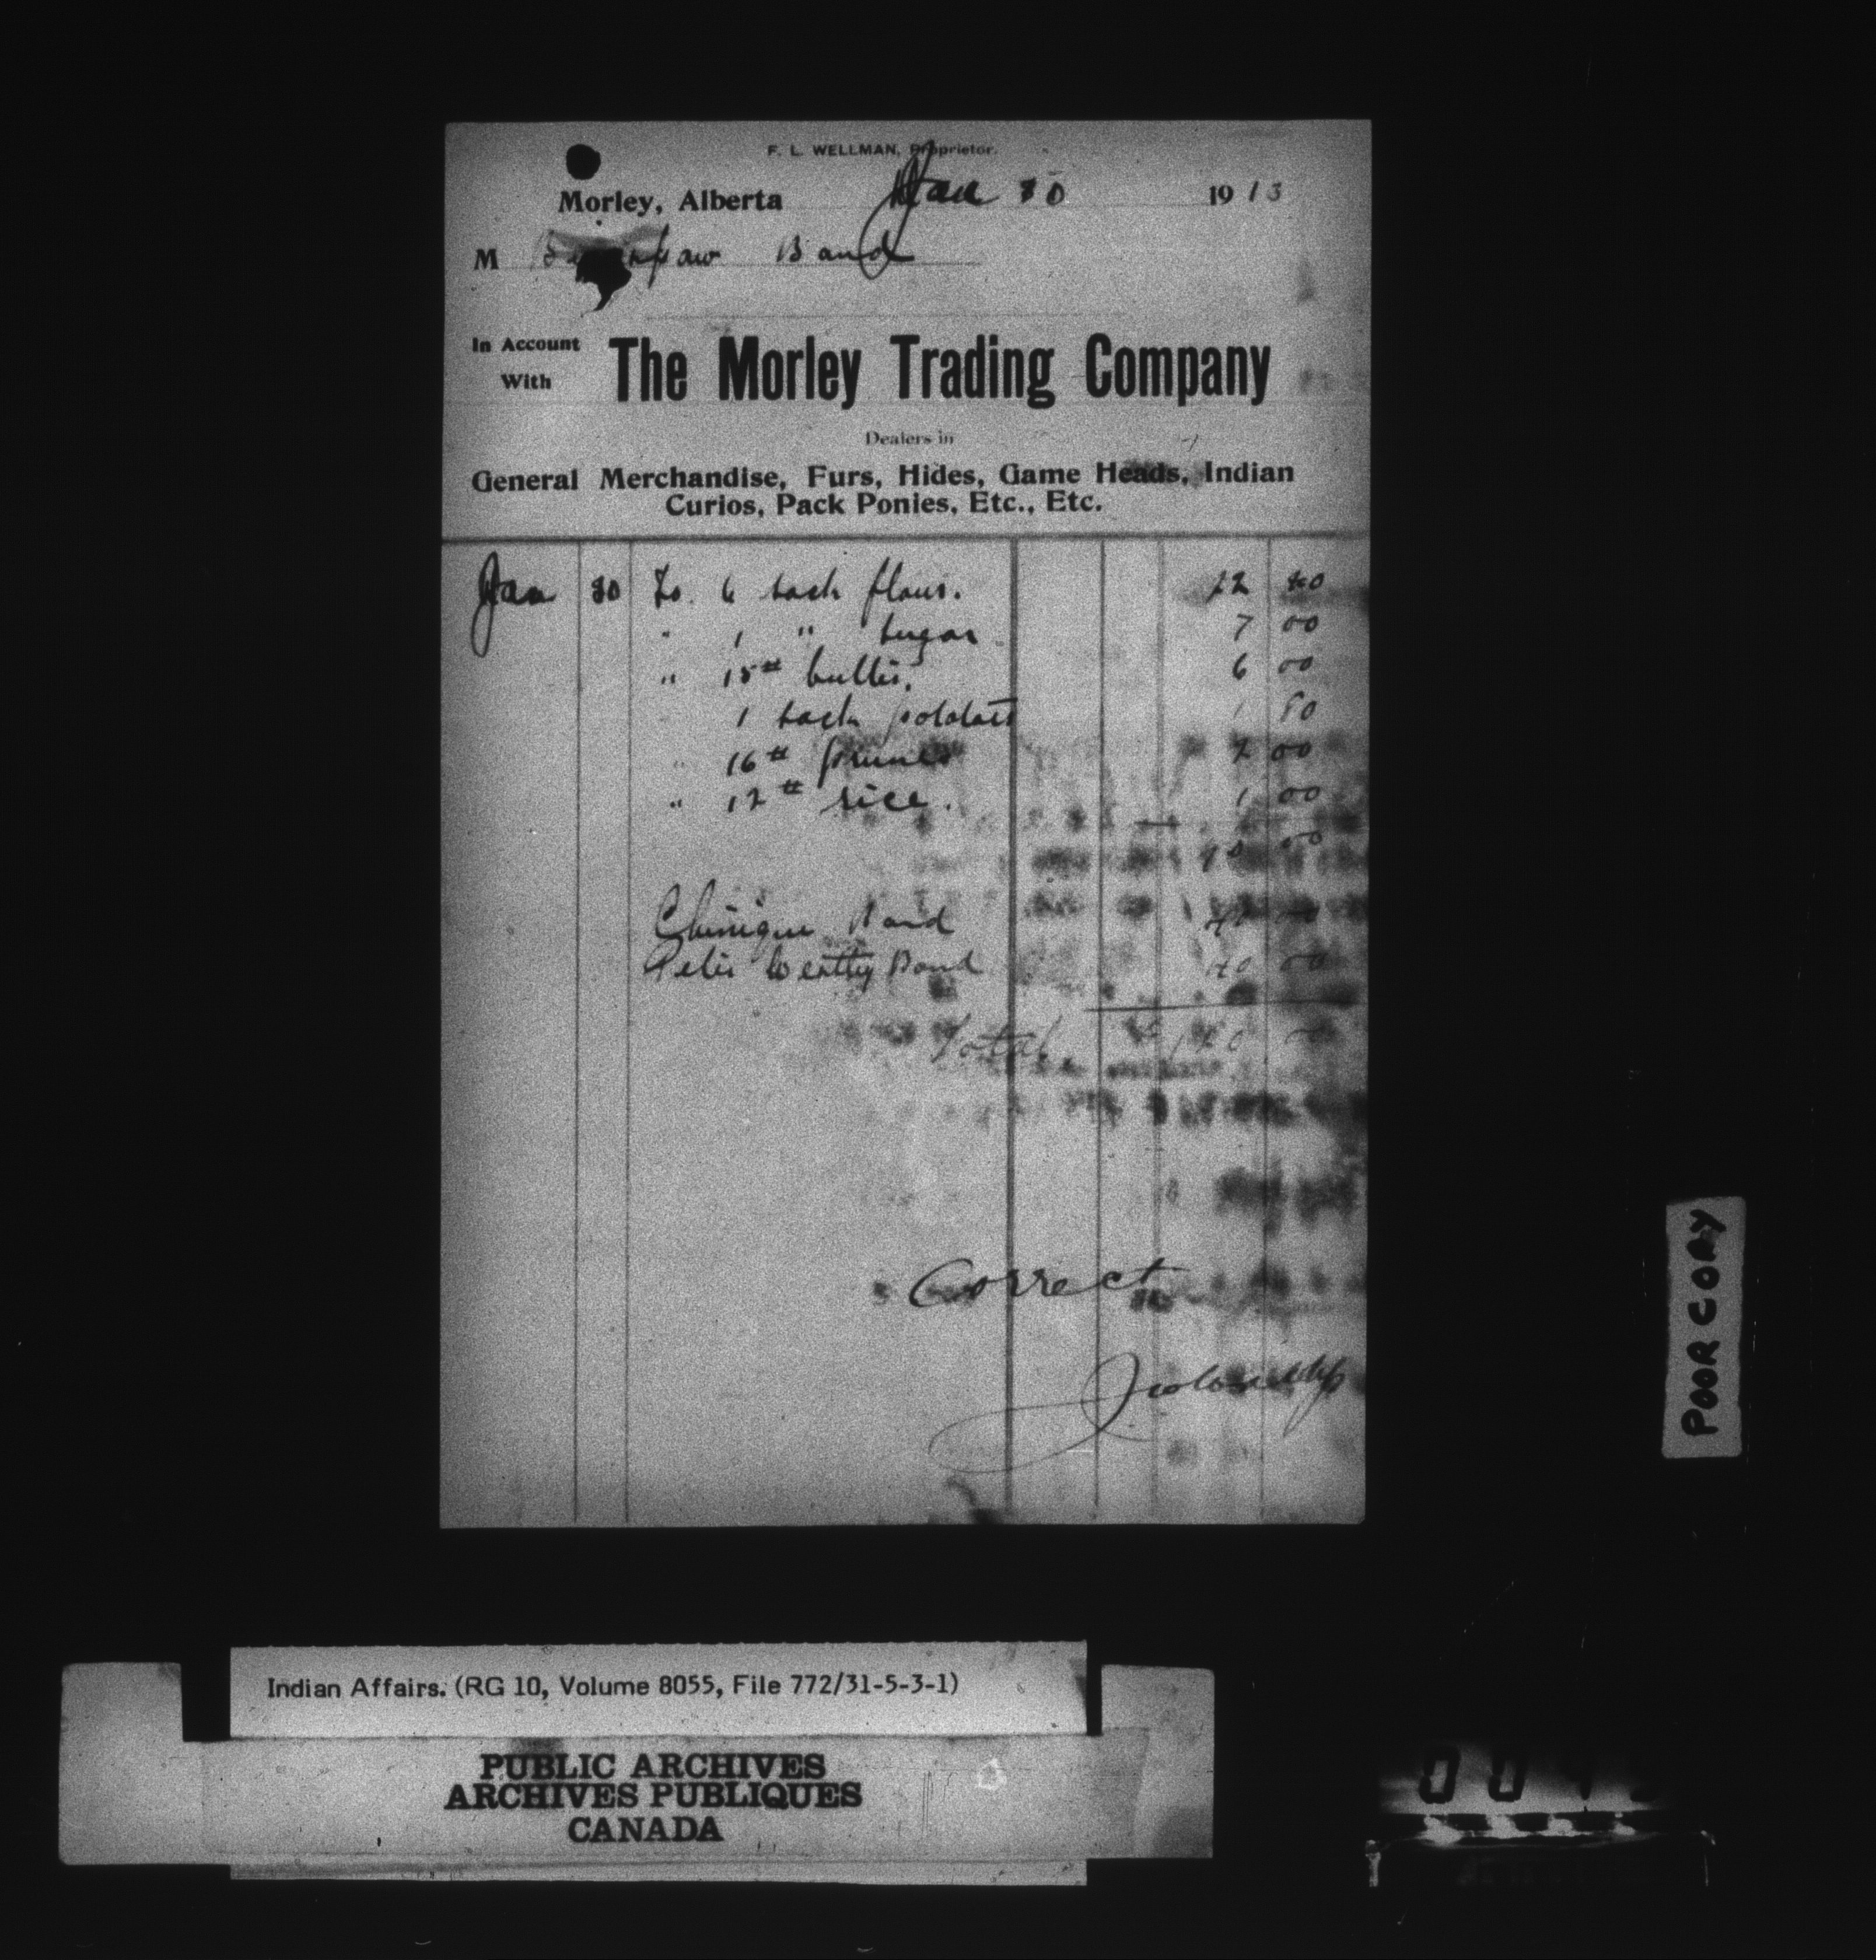 F. L. WELLMAN, Proprietor.
Morley, Alberta Jan 30 1913
M Bearspaw Band
In Account
With
The Morley Trading Company
Dealers in
General Merchandise, Furs, Hides, Game Heads, Indian
Curios, Pack Ponies, Etc., Etc.
Jan 30 To 6 sack flour. 22
" 1 " sugar 7 00
" 15# butter. 6 00
1 sack potatoes 1
" 16# prunes 2 00
" 12# rice. 1 00
00
Chiniquy Band 40 00
Peter Wesley Band 40 00
Total $120 00
Correct
POOR COPY
Indian Affairs. (RG 10, Volume 8055, File 772/31-5-3-1)
PUBLIC ARCHIVES
ARCHIVES PUBLIQUES
CANADA